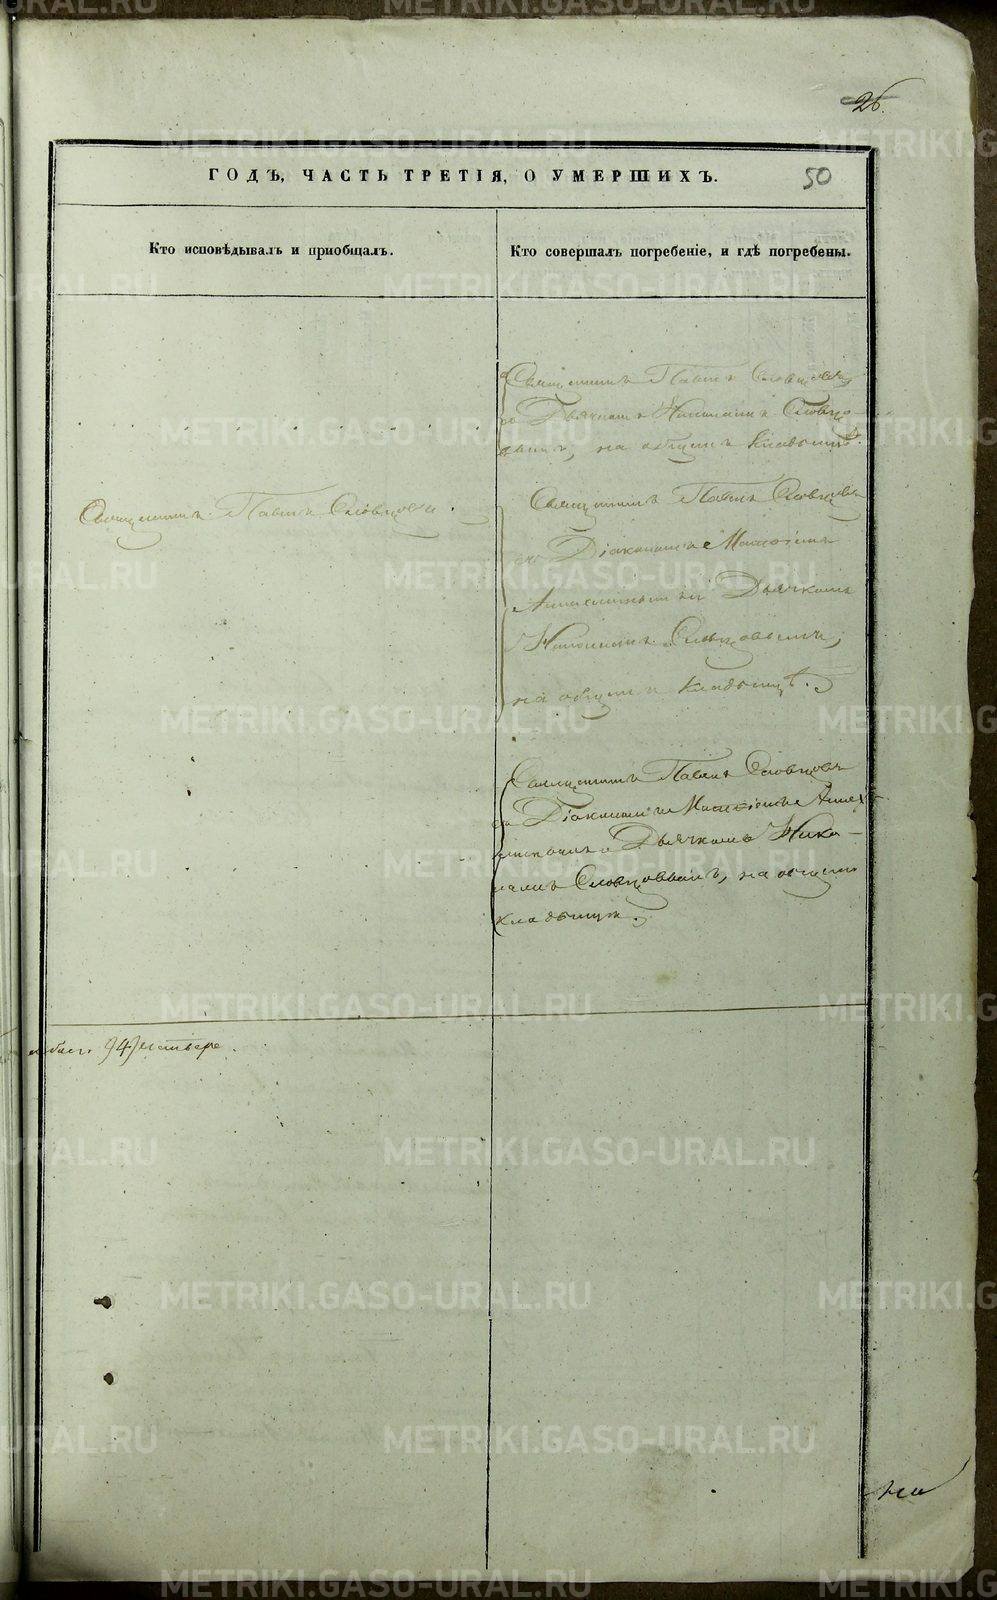 26.
ГОДЪ, ЧАСТЬ ТРЕТІЯ, О УМЕРШИХЪ.
50
Кто исповѣдывалъ и пріобщалъ.
Кто совершалъ погребеніе, и гдѣ погребены.
Священникъ Павелъ Словцовъ
съ Дьячкомъ Николаемъ Словцо-
вымъ, на общемъ кладбищѣ.
Священникъ Павелъ Словцовъ.
Священникъ Павелъ Словцовъ
съ Діакономъ
и Дьячкомъ
Николаемъ Словцовымъ,
на общемъ кладбищѣ.
Священникъ Павелъ Словцовъ
съ Діакономъ
Дьячкомъ Нико-
лаемъ Словцовымъ, на общемъ
кладбищѣ.
METRIKI.GASO-URAL.RU